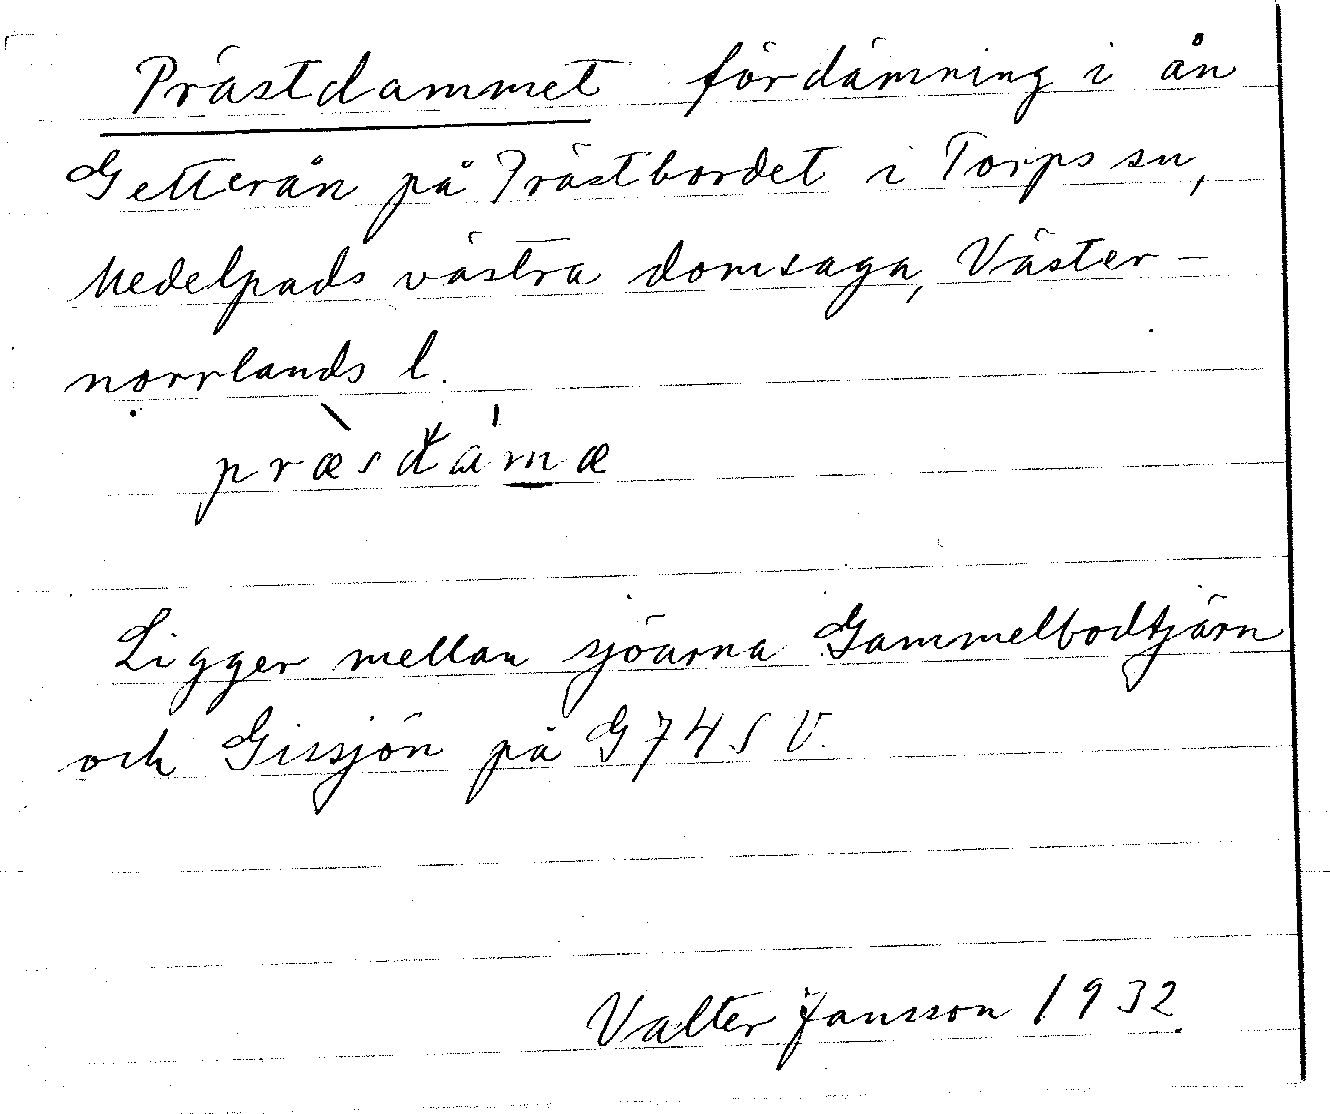 Prästdammet fördämning i ån
Getterån på Prästbordet i Torps sn,
Medelpads västra domsaga, Väster-
norrlands l.
præsdamæ
Ligger mellan sjöarna Gammelbodtjärn
och Gissjön på G 74 S V.
Valter Jansson 1932.